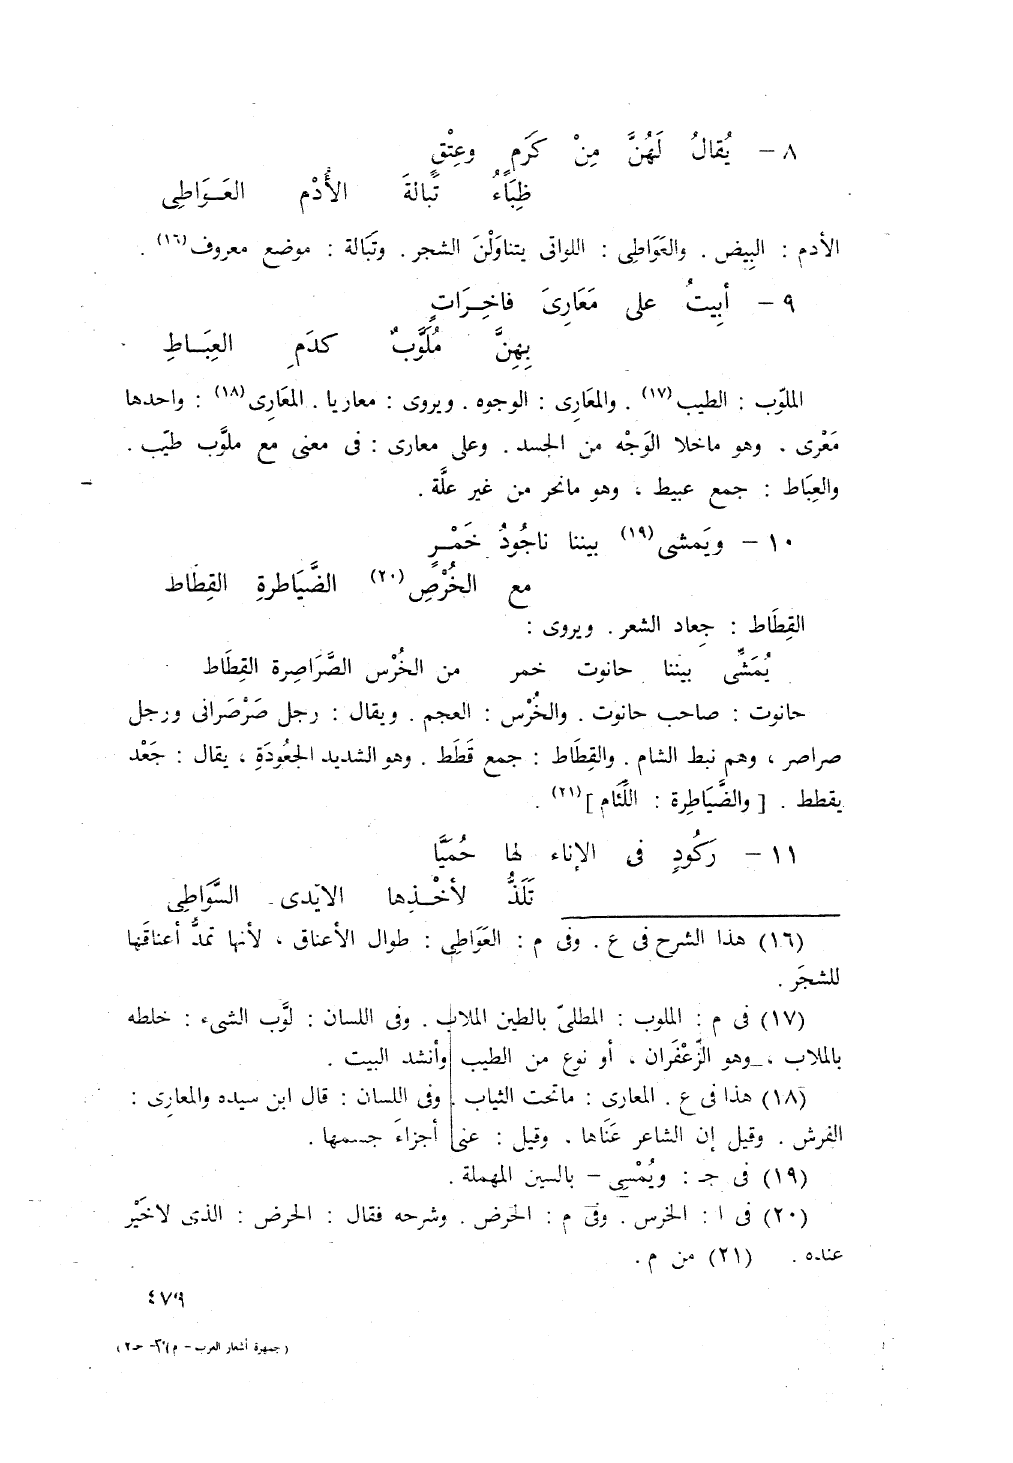 ٨ – يُقالُ لَهُنَّ مِنْ كَرَمٍ وعِتْقٍ
ظِبَاءُ تَبالةَ الأُدْم العَــوَاطِى
الأدم : البِيض . والعَوَاطِى : اللواتى يتناوَلْنَ الشجر . وتَبَالة : موضع معروف(١٦) .
٩ – أبِيتُ على مَعَارِىَ فاخِــرَاتٍ
بِهِنَّ مُلَوَّبٌ كدَمِ العِبَــاطِ
الملوّب : الطيب(١٧) . والمعَارِى : الوجوه . ويروى : معاريا . المعَارِى(١٨) : واحدها
مَعْرى . وهو ماخلا الوَجْه من الجسد . وعلى معارى : فى معنى مع ملوَّب طيّب .
والعِبَاط : جمع عبيط ، وهو مانحر من غير علَّة .
١٠ – ويَمشى(١٩) بيننا ناجُودُ خَمْــرٍ
مع الخُرْصِ(٢٠) الضَّيَاطرةِ القِطَاط
القِطَاط : جِعاد الشعر . ويروى :
يُمَشِّى بيننا حانوت خمر من الخُرْس الصَّرَاصِرة القِطَاط
حانوت : صاحب حانوت . والخُرْس : العجم . ويقال : رجل صَرْصَرانى ورجل
صراصر ، وهم نبط الشام . والقِطَاط : جمع قَطَط . وهو الشديد الجعُودَةِ ، يقال : جَعْد
يقطط . [ والضَّيَاطِرة : اللِّئَام ](٢١) .
١١ – رَكُودٍ فى الإناء لها حُمَيَّا
تَلَذُّ لأخْــذِها الايّدى السَّوَاطِى
(١٦) هذا الشرح فى ع . وفى م : العَوَاطِى : طوال الأعناق ، لأنها تمدُّ أعناقَها
للشجَر .
(١٧) فى م : الملوب : المطلىّ بالطين الملاب . وفى اللسان : لوَّب الشىء : خلطه
بالملاب ، وهو الزّعْفَران ، أو نوع من الطيب وأنشد البيت .
(١٨) هذا فى ع . المعارى : ماتحت الثياب . وفى اللسان : قال ابن سيده والمعارِى :
الفرش . وقيل إن الشاعر عَنَاها . وقيل : عنى أجزاءَ جسمها .
(١٩) فى جـ : ويُمْسِى – بالسين المهملة .
(٢٠) فى ا : الخرس . وفى م : الحرض . وشرحه فقال : الحرض : الذى لاخَيْر
عنده . (٢١) من م .
٤٧٩
( جمهرة أشعار العرب – م ٣٠ – حـ٢ )